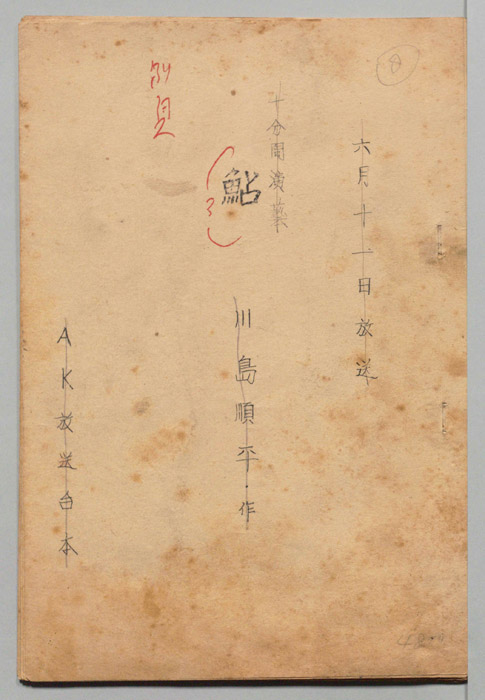 8
六月十一日放送
十分間演芸
鮎
川島順平・作
AK放送台本